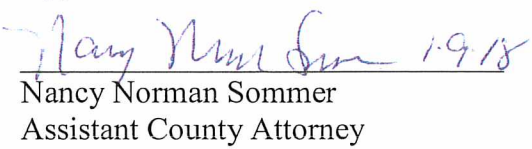 Nancy Norman Sommer 1.9.18
Nancy Norman Sommer
Assistant County Attorney